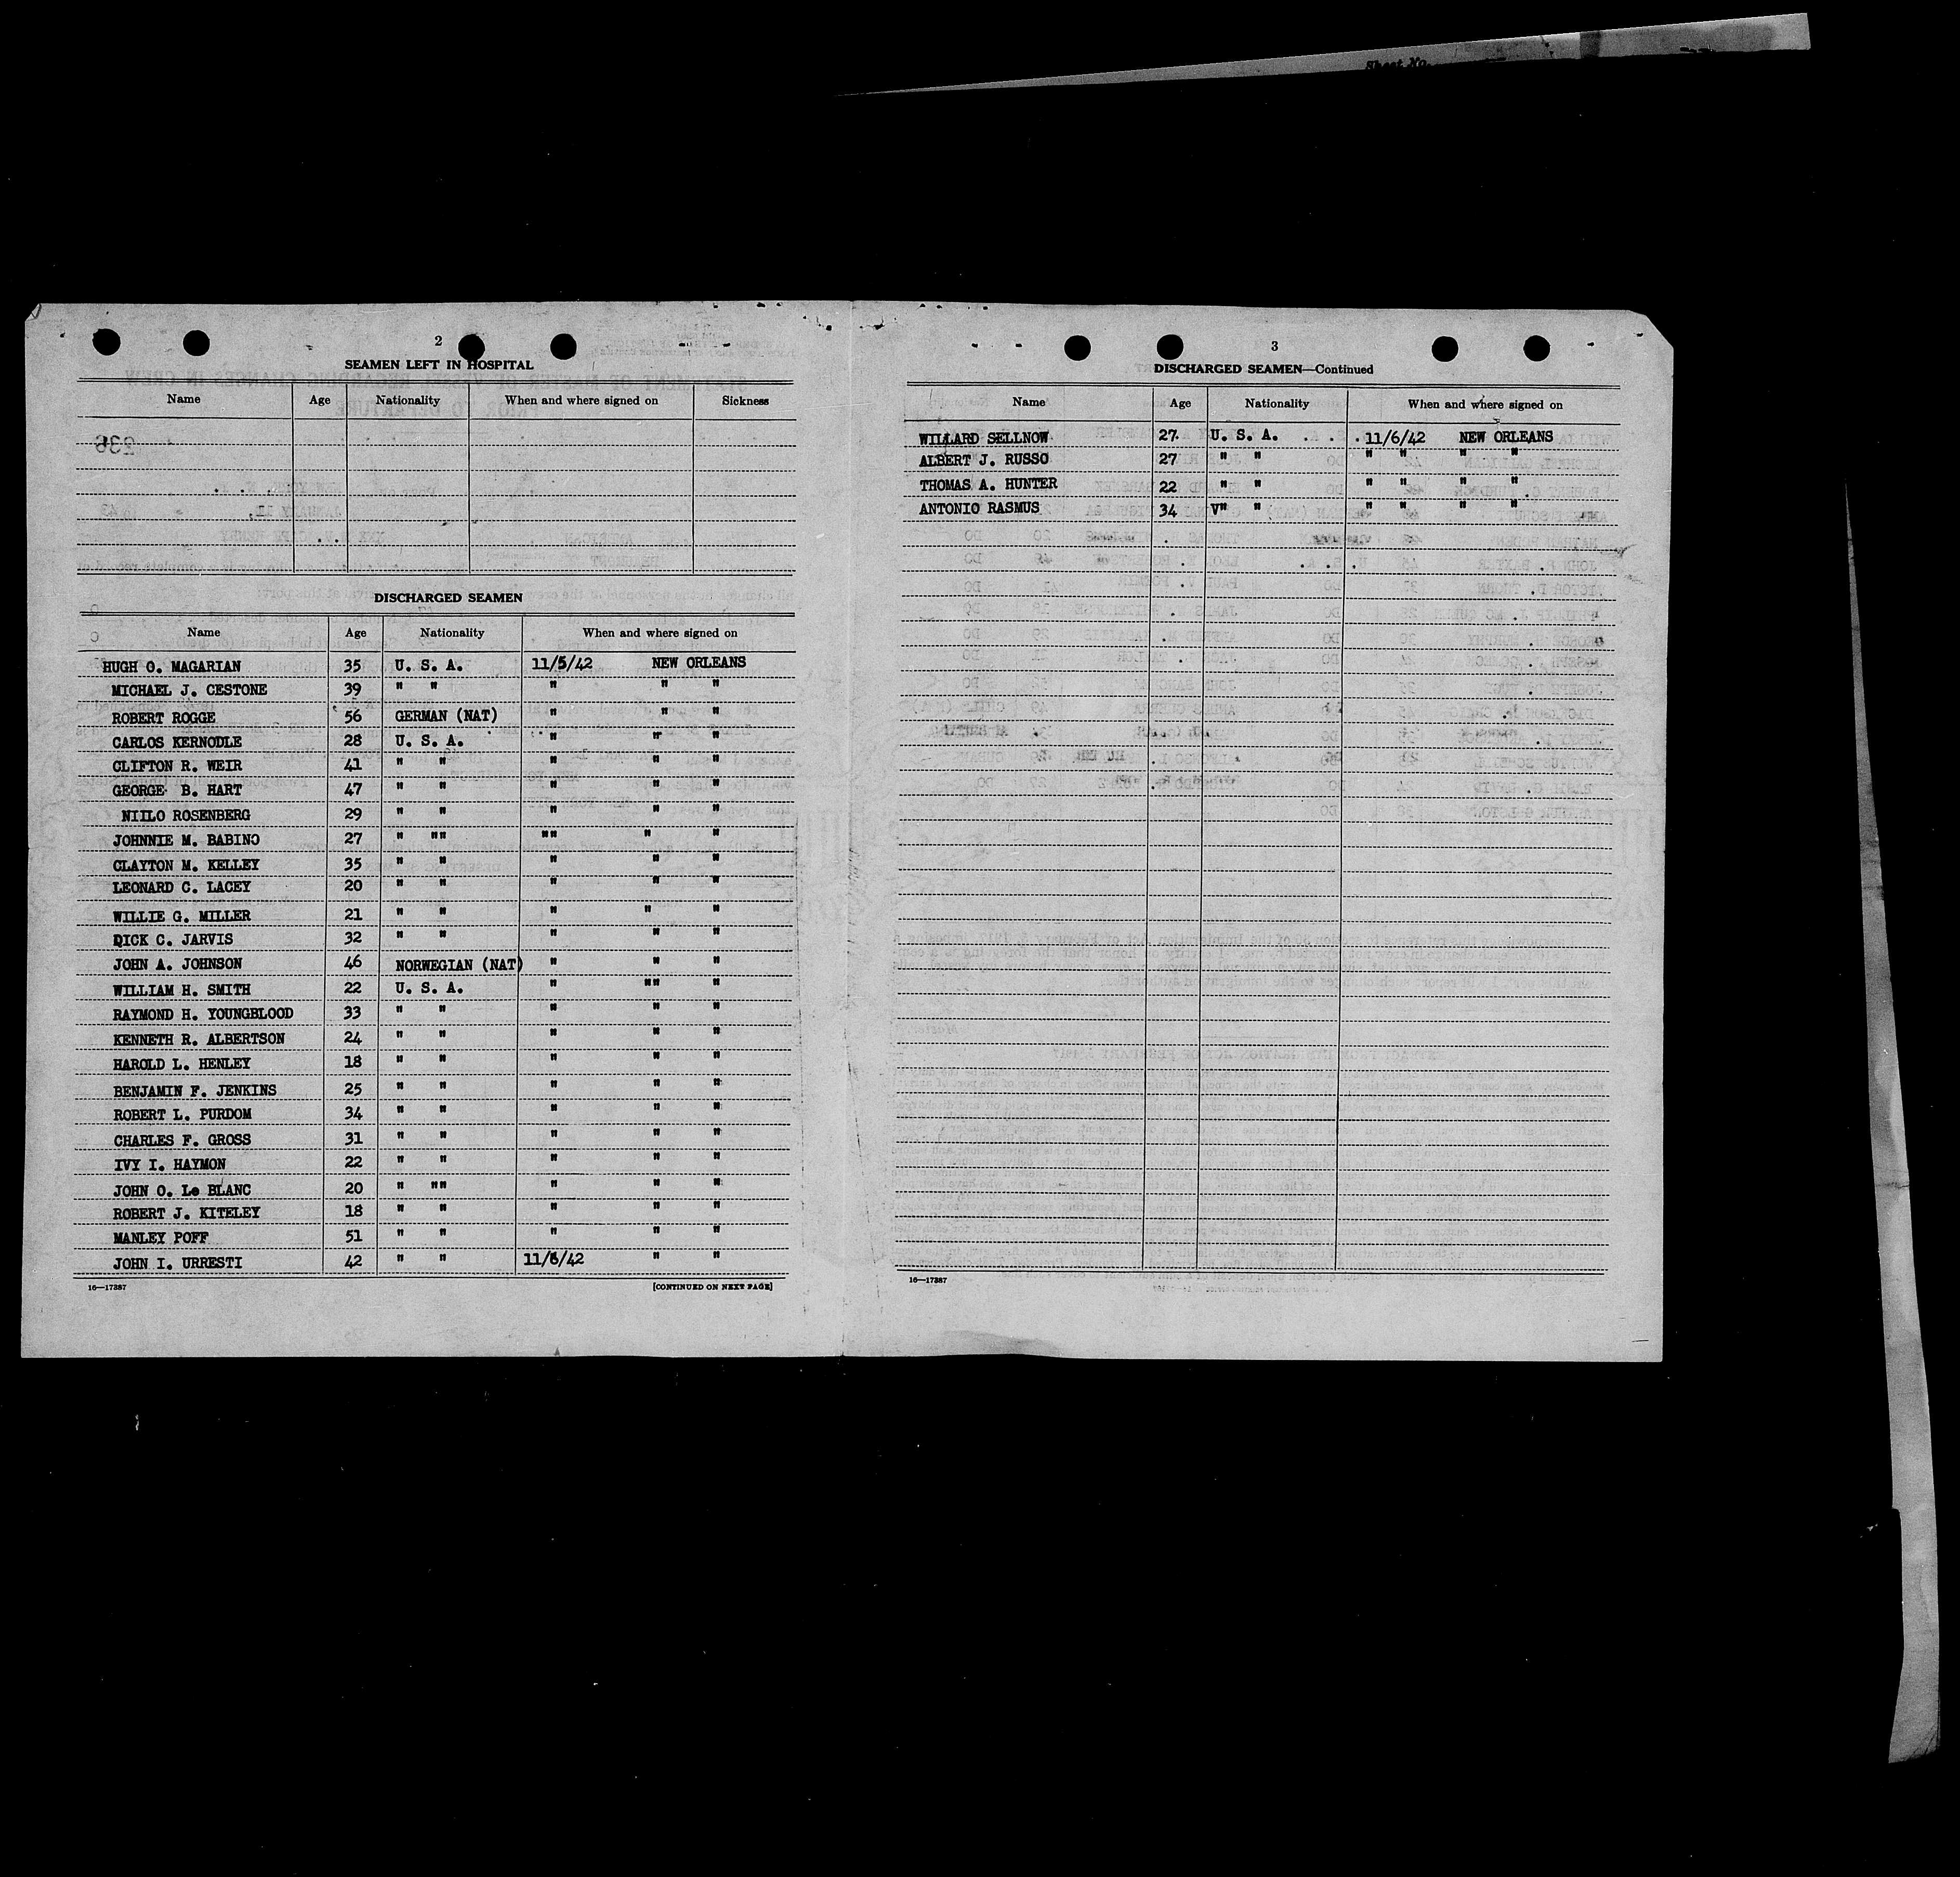 Sheet No.
2
SEAMEN LEFT IN HOSPITAL
Name Age Nationality When and where signed on Sickness
DISCHARGED SEAMEN
Name Age Nationality When and where signed on
HUGH O. MAGARIAN 35 U. S. A. 11/5/42 NEW ORLEANS
MICHAEL J. CESTONE 39 " " " " "
ROBERT ROGGE 56 GERMAN (NAT) " " "
CARLOS KERNODLE 28 U. S. A. " " "
CLIFTON R. WEIR 41 " " " " "
GEORGE B. HART 47 " " " " "
NIILO ROSENBERG 29 " " " " "
JOHNNIE M. BABINO 27 " "" "" " "
CLAYTON M. KELLEY 35 " " " " "
LEONARD C. LACEY 20 " " " " "
WILLIE G. MILLER 21 " " " " "
DICK C. JARVIS 32 " " " " "
JOHN A. JOHNSON 46 NORWEGIAN (NAT) " " "
WILLIAM H. SMITH 22 U. S. A. " "" "
RAYMOND H. YOUNGBLOOD 33 " " " " "
KENNETH R. ALBERTSON 24 " " " " "
HAROLD L. HENLEY 18 " " " " "
BENJAMIN F. JENKINS 25 " " " " "
ROBERT L. PURDOM 34 " " " " "
CHARLES F. GROSS 31 " " " " "
IVY I. HAYMON 22 " " " " "
JOHN O. Le BLANC 20 " "" " " "
ROBERT J. KITELEY 18 " " " " "
MANLEY POFF 51 " " " " "
JOHN I. URRESTI 42 " " 11/6/42 " "
16—17387 [CONTINUED ON NEXT PAGE]
3
DISCHARGED SEAMEN—Continued
Name Age Nationality When and where signed on
WILLARD SELLNOW 27 U. S. A. 11/6/42 NEW ORLEANS
ALBERT J. RUSSO 27 " " " " " "
THOMAS A. HUNTER 22 " " " " " "
ANTONIO RASMUS 34 V" " " " " "
16—17387